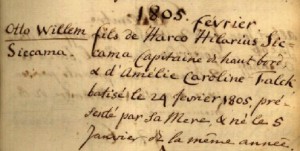 1805. février
Otto Willem
Siccama.
fils de Harco Hilarius Sic-
cama Capitaine d'haut bord
& d'Amelie Caroline Falck
batisé le 24 fevrier 1805, pré-
senté par sa Mere, & né le 5
Janvier de la même année.